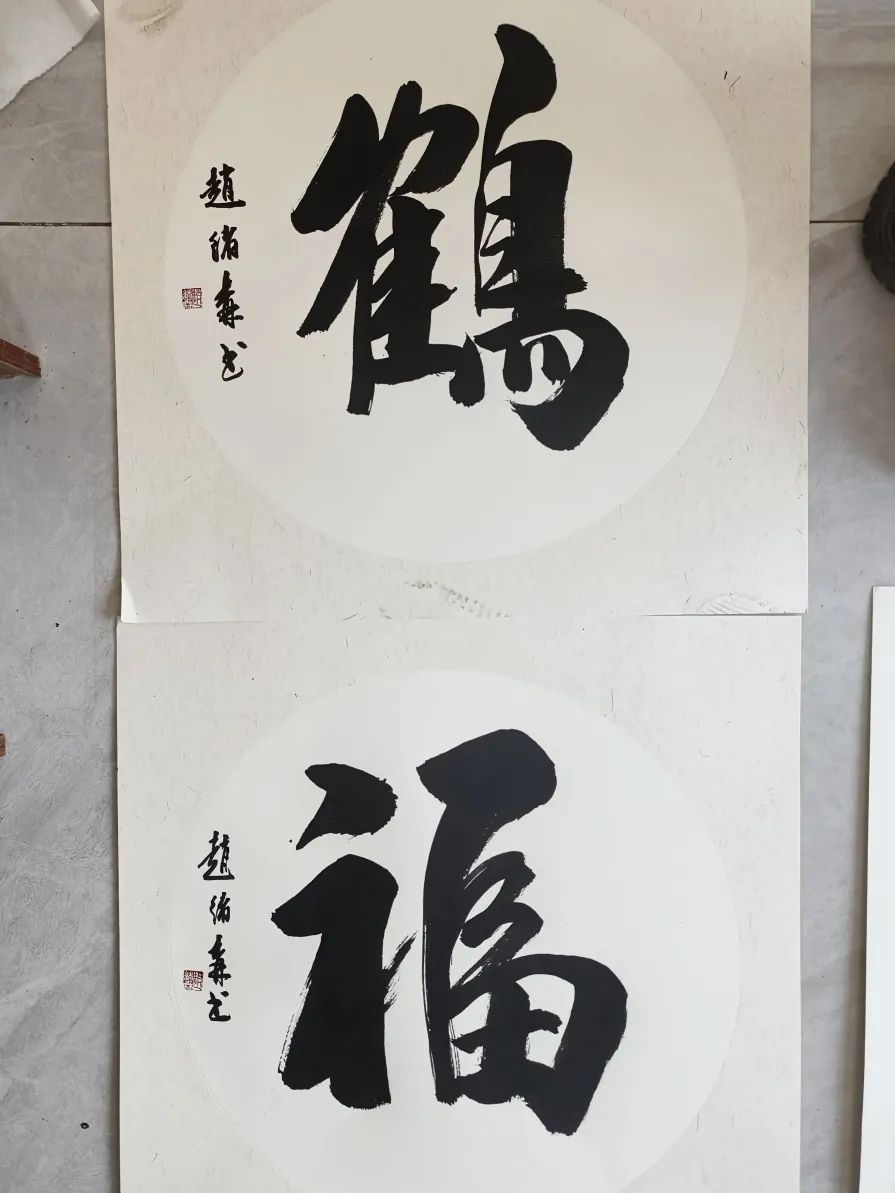 鶴
趙緒森書
福
趙緒森書